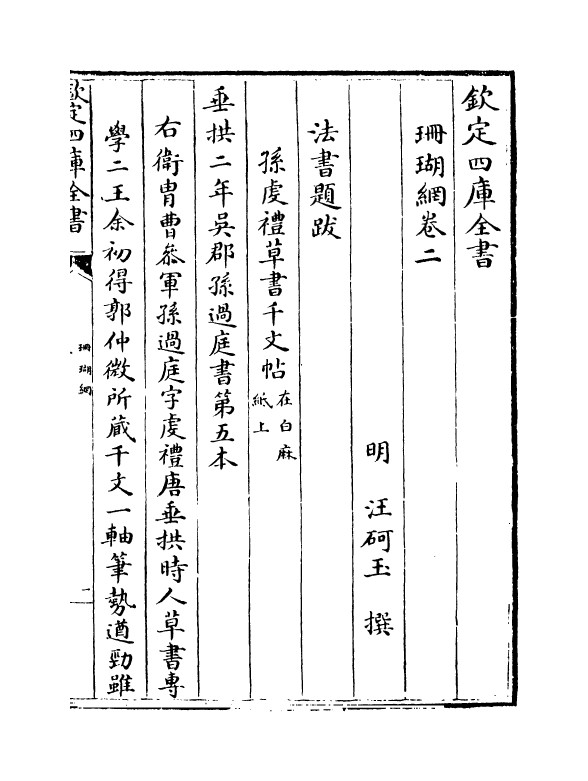 欽定四庫全書
珊瑚網卷二
明 汪砢玉 撰
法書題跋
孫虔禮草書千文帖在白麻紙上
垂拱二年吳郡孫過庭書第五本
右衛胄曹叅軍孫過庭字虔禮唐垂拱時人草書專
學二王余初得郭仲微所藏千文一軸筆勢遒勁雖
欽定四庫全書
珊瑚網
二